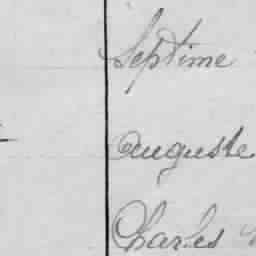 Septime
Auguste
Charles